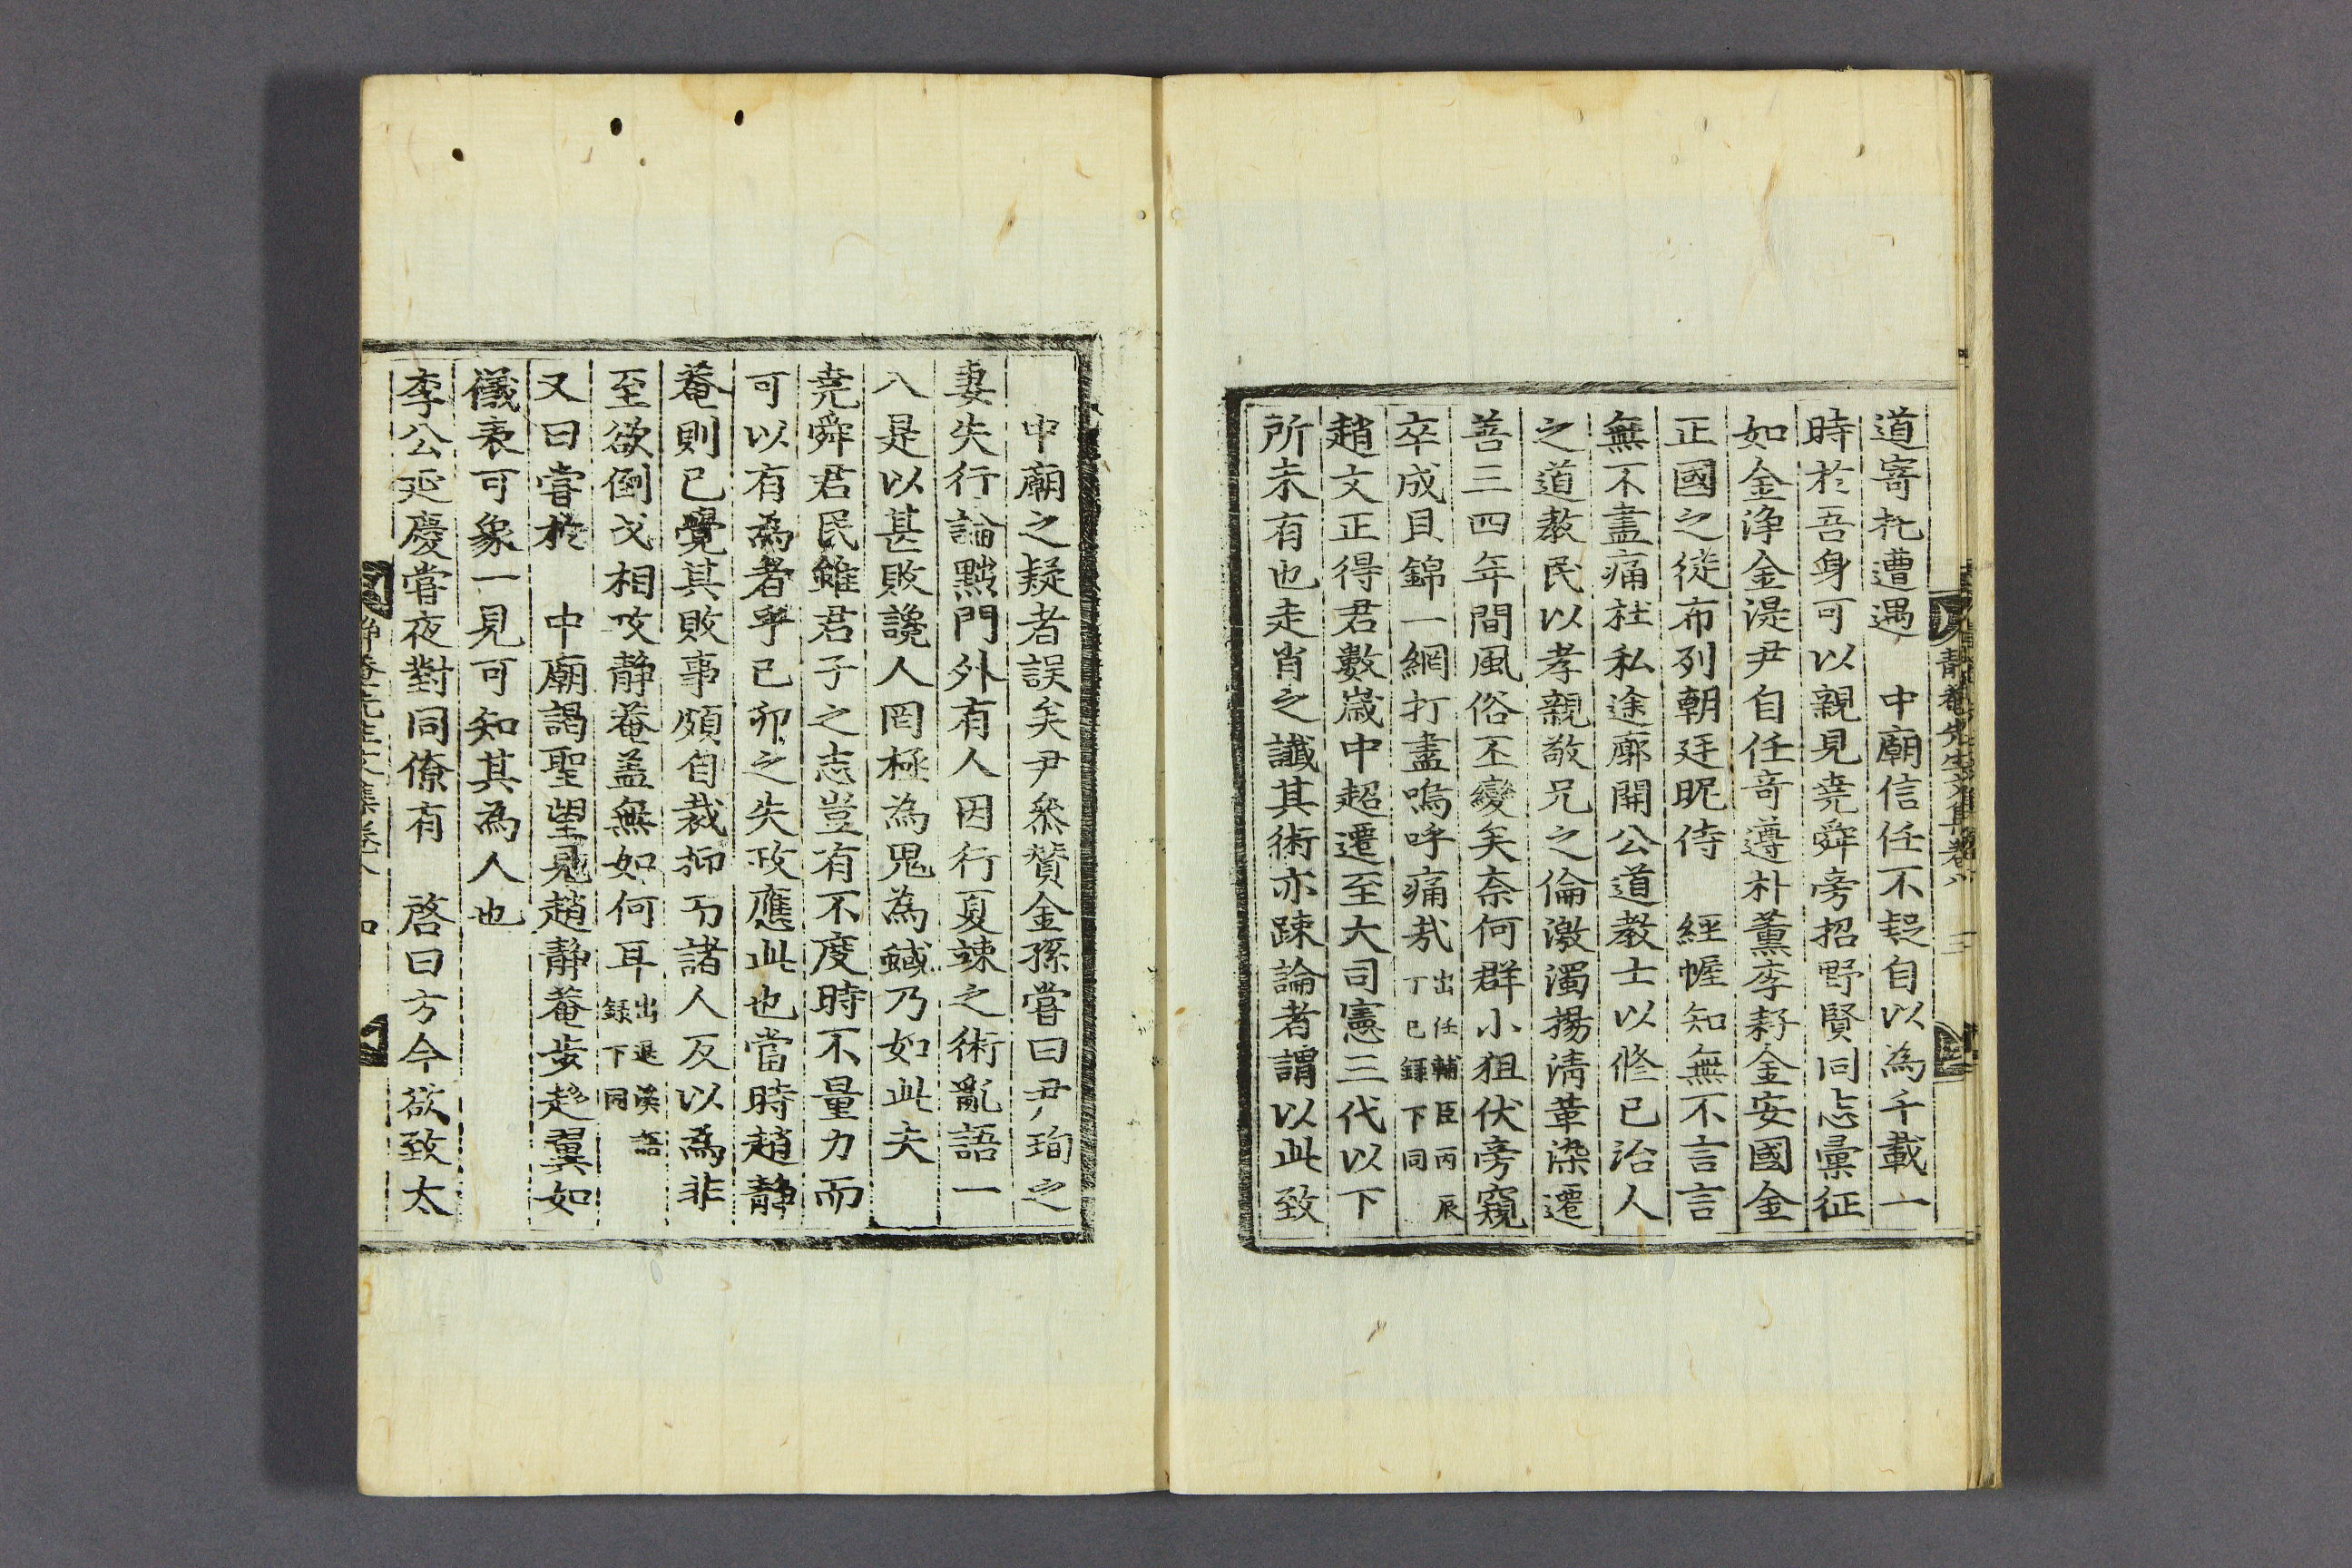 道寄托遭遇　中廟信任不疑自以為千載一
時於吾身可以親見堯舜旁招野賢同志彙征
如金淨金湜尹自任奇遵朴薰李耔金安國金
正國之徒布列朝廷昵侍　經幄知無不言言
無不盡痛杜私途廓開公道教士以修己治人
之道教民以孝親敬兄之倫激濁揚清革染遷
善三四年間風俗丕變矣奈何群小狙伏旁窺
卒成貝錦一網打盡嗚呼痛哉出任輔臣丙辰丁巳錄下同
趙文正得君數歲中超遷至大司憲三代以下
所未有也走肖之讖其術亦踈論者謂以此致
靜菴先生文集卷八　三
中廟之疑者誤矣尹叅贊金孫嘗曰尹珣之
妻失行論黜門外有人因行夏竦之術亂語一
入是以甚敗讒人罔極為鬼為蜮乃如此夫
堯舜君民雖君子之志豈有不度時不量力而
可以有為者乎己卯之失政應此也當時趙靜
菴則已覺其敗事頗自裁抑而諸人反以為非
至欲倒戈相攻靜菴盖無如何耳出退溪語錄下同
又曰嘗於　中廟謁聖望見趙靜菴步趍翼如
儀表可象一見可知其為人也
李公延慶嘗夜對同僚有　啓曰方今欲致太
靜菴先生文集卷八